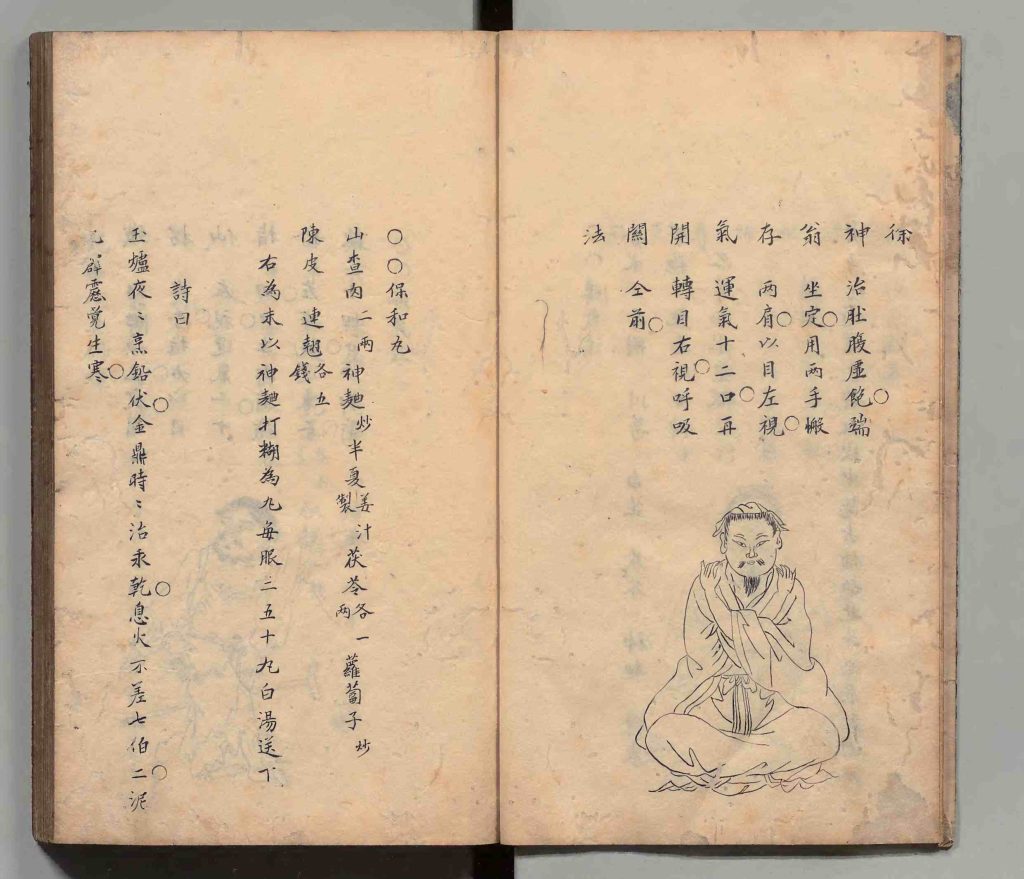 徐
神 治肚腹虛飽端
翁 坐定用两手搬
存 两肩以目左視
氣 運氣十二口再
開 轉目右視呼吸
關 仝前
法
○○保和丸
山查肉二兩神麯炒半夏姜汁製茯苓各一兩蘿蔔子炒
陳皮連翹各五錢
右為末以神麯打糊為丸每服三五十丸白湯送下
詩曰
玉爐夜〻烹鉛伏金鼎時〻治汞乾息火不差七伯二泥
丸霹靂覺生寒